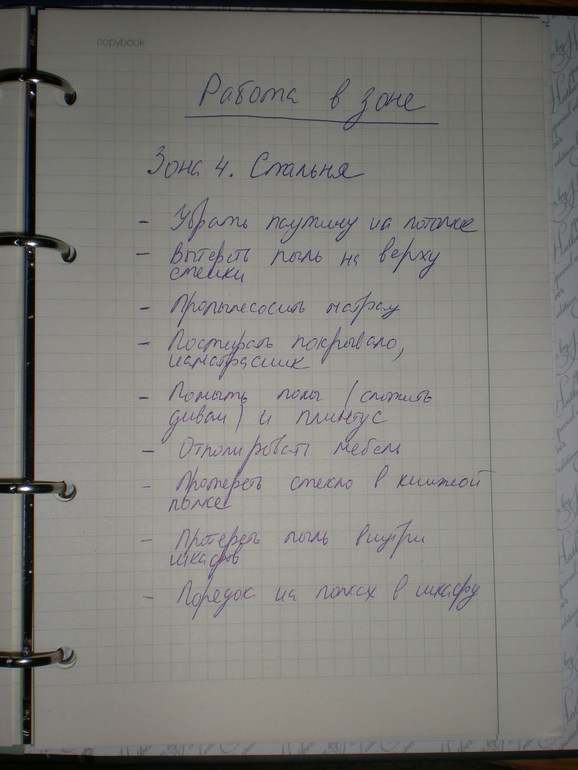 copybook
Работа в зоне
Зона 4. Спальня
- Убрать паутину на потолке
- Вытереть пыль на верху
стенки
- Пропылесосить матрац
- Постирать покрывало,
наматрасник
- Помыть полы (сложить
диван) и плинтус
- Отполировать мебель
- Протереть стекло в книжной
полке
- Протереть пыль внутри
шкафов
- Порядок на полках в шкафу